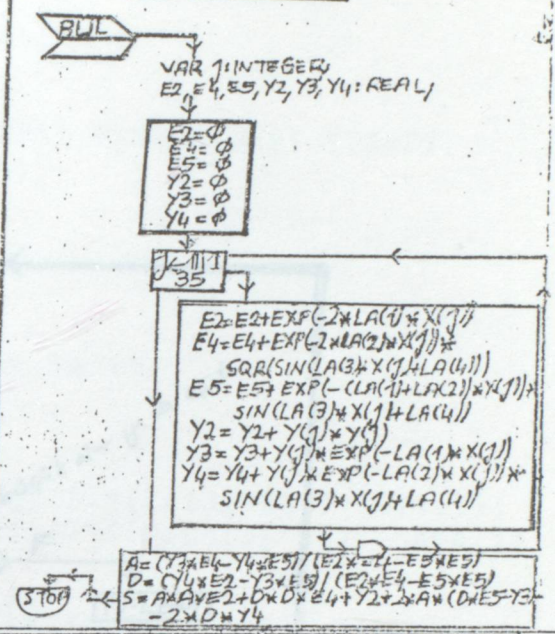 BUL
VAR J:INTEGER;
E2,E4,E5,Y2,Y3,Y4:REAL;
E2=Ø
E4=Ø
E5=Ø
Y2=Ø
Y3=Ø
Y4=Ø
35
E2=E2+EXP(-2*LA(1)*X(J))
E4=E4+EXP(-2*LA(2)*X(J))*
SQR(SIN(LA(3)*X(J)+LA(4)))
E5=E5+EXP(-(LA(1)+LA(2))*X(J))*
SIN(LA(3)*X(J)+LA(4))
Y2=Y2+Y(J)*Y(J)
Y3=Y3+Y(J)*EXP(-LA(1)*X(J))
Y4=Y4+Y(J)*EXP(-LA(2)*X(J))*
SIN(LA(3)*X(J)+LA(4))
A=(Y3*E4-Y4*E5)/(E2*E4-E5*E5)
D=(Y4*E2-Y3*E5)/(E2*E4-E5*E5)
S=A*A*E2+D*D*E4+Y2+2*A*(D*E5-Y3)
-2*D*Y4
STOP